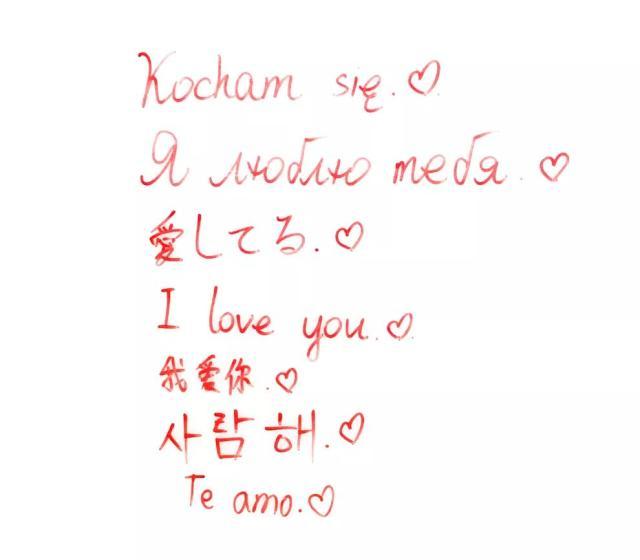 Kocham się. ♡
Я люблю тебя. ♡
愛してる. ♡
I love you. ♡
我爱你. ♡
사람해. ♡
Te amo. ♡